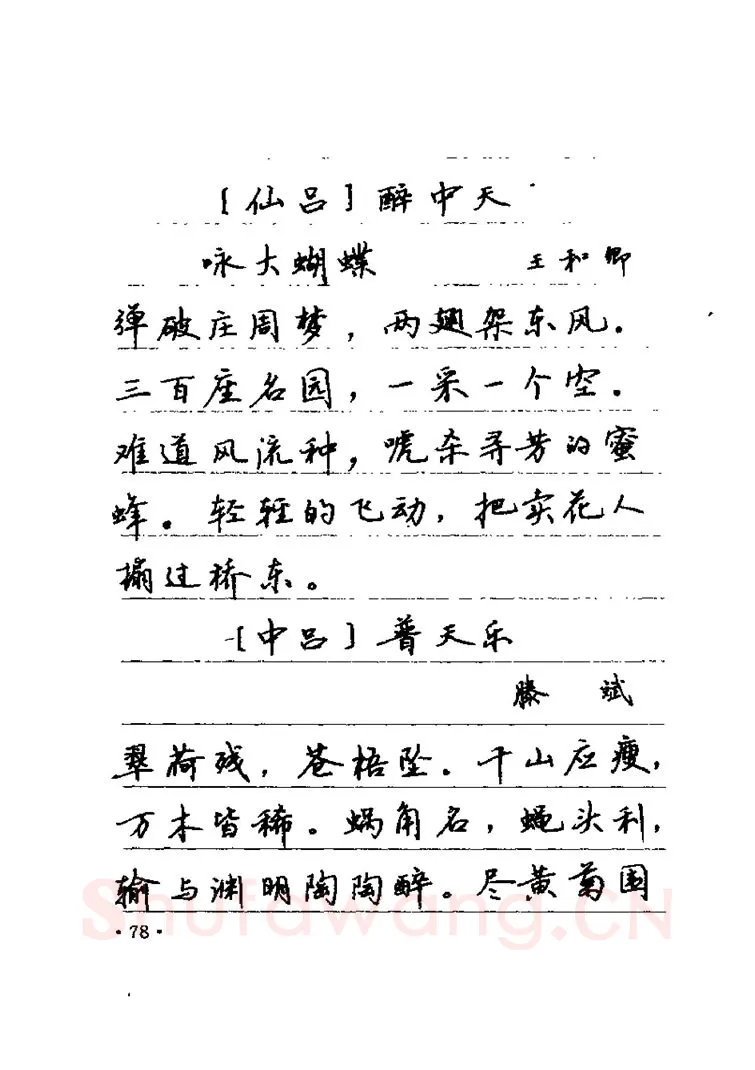 [仙吕]醉中天
咏大蝴蝶 王和卿
弹破庄周梦，两翅架东风。
三百座名园，一采一个空。
难道风流种，唬杀寻芳的蜜
蜂。轻轻的飞动，把卖花人
搧过桥东。
[中吕]普天乐
滕 斌
翠荷残，苍梧坠。千山应瘦，
万木皆稀。蜗角名，蝇头利，
输与渊明陶陶醉。尽黄菊围
Shufawang.CN
·78·